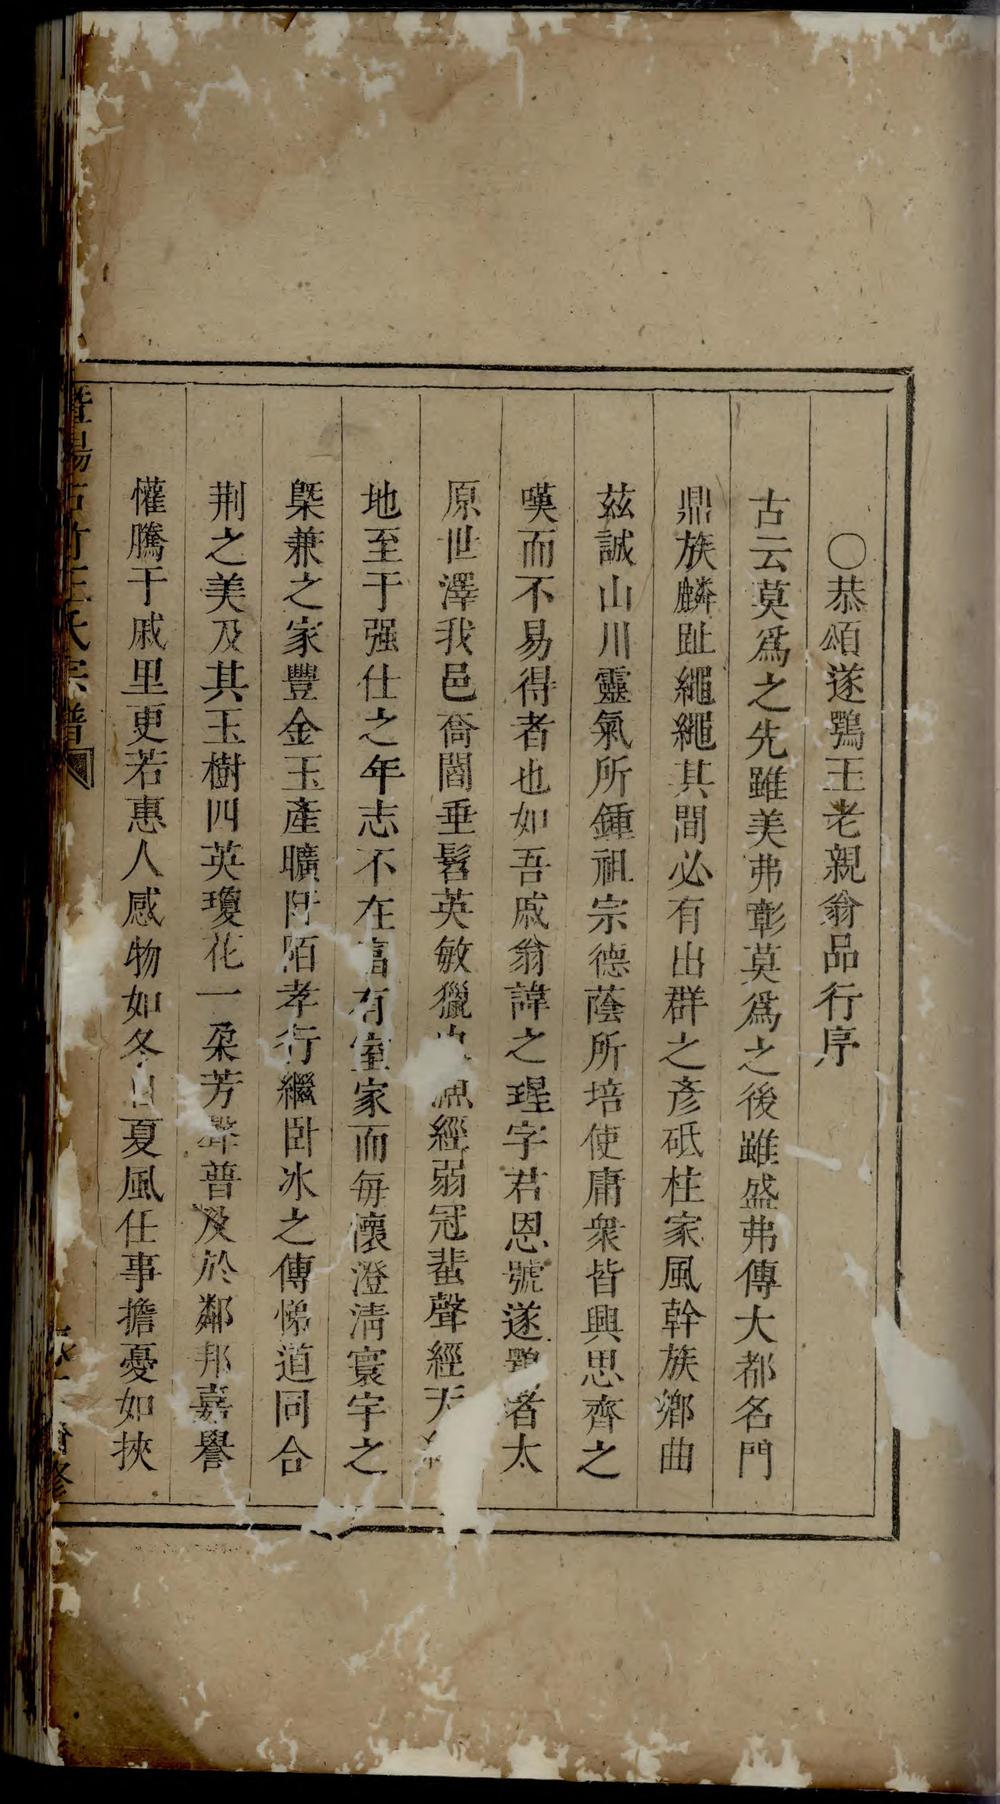 〇恭頌遂鶚王老親翁品行序
古云莫爲之先雖美弗彰莫爲之後雖盛弗傳大都名門
鼎族麟趾繩繩其間必有出群之彥砥柱家風幹族鄉曲
茲誠山川靈氣所鍾祖宗德蔭所培使庸衆皆興思齊之
嘆而不易得者也如吾戚翁諱之瑆字君恩號遂鶚者太
原世澤我邑喬閥垂髫英敏獵史漁經弱冠蜚聲經天
地至于强仕之年志不在富有室家而每懷澄清寰宇之
槩兼之家豐金玉產曠阡陌孝行繼臥冰之傳悌道同合
荆之美及其玉樹四英瓊花一朶芳聲普及於鄰邦嘉譽
懽騰于戚里更若惠人感物如冬日夏風任事擔憂如挾
暨陽古竹王氏宗譜